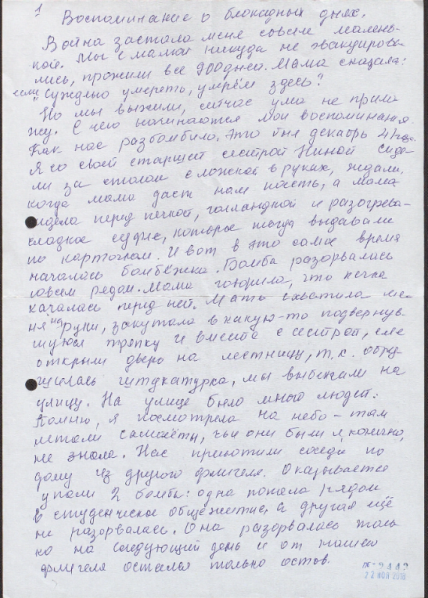 1
Воспоминание о блокадных днях.
Война застала меня совсем малень-
кой. Мы с мамой никуда не эвакцирова-
лись, прожили все 900 дней. Мама сказала:
"если суждено умереть, умрём здесь"!
Но мы выжили, сейчас ума не прило-
жу. С чего начинаются мои воспоминания
Как нас разбомбило. Это был декабрь 41 года.
Я со своей старшей сестрой Ниной сиде-
ли за столом с ложкой в руках, ждали,
когда мама даст нам поесть, а мама
сидела перед печкой, голландкой и разогрева-
ла соевое суфле, которое тогда выдавали
по карточкам. И вот в это самое время
началась бомбёжка. Бомба разорвалась
совсем рядом. Мама говорила, что печка
качалась перед ней. Мать схватила ме-
ня на руки, закутала в какую-то подвернув-
шуюся тряпку и вместе с сестрой, еле
открыли дверь на лестницу, т.к. обру-
шилась штукатурка, мы выбежали на
улицу. На улице было много людей.
Помню, я посмотрела на небо – там
летали самолёты, чьи они были я, конечно,
не знала. Нас приютили соседи по
дому из другого флигеля. Оказывается
упали 2 бомбы: одна попала рядом
в студенческое общежитие, а другая ещё
не разорвалась. Она разорвалась толь-
ко на следующий день и от нашего
флигеля остался только остов.